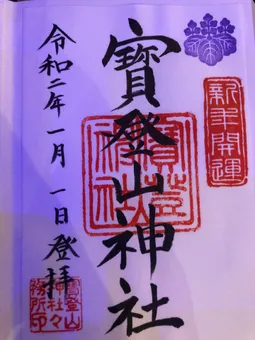 新年開運
寳登山神社
寳登山神社
令和二年一月一日登拝
寳登山
神社々
務所印